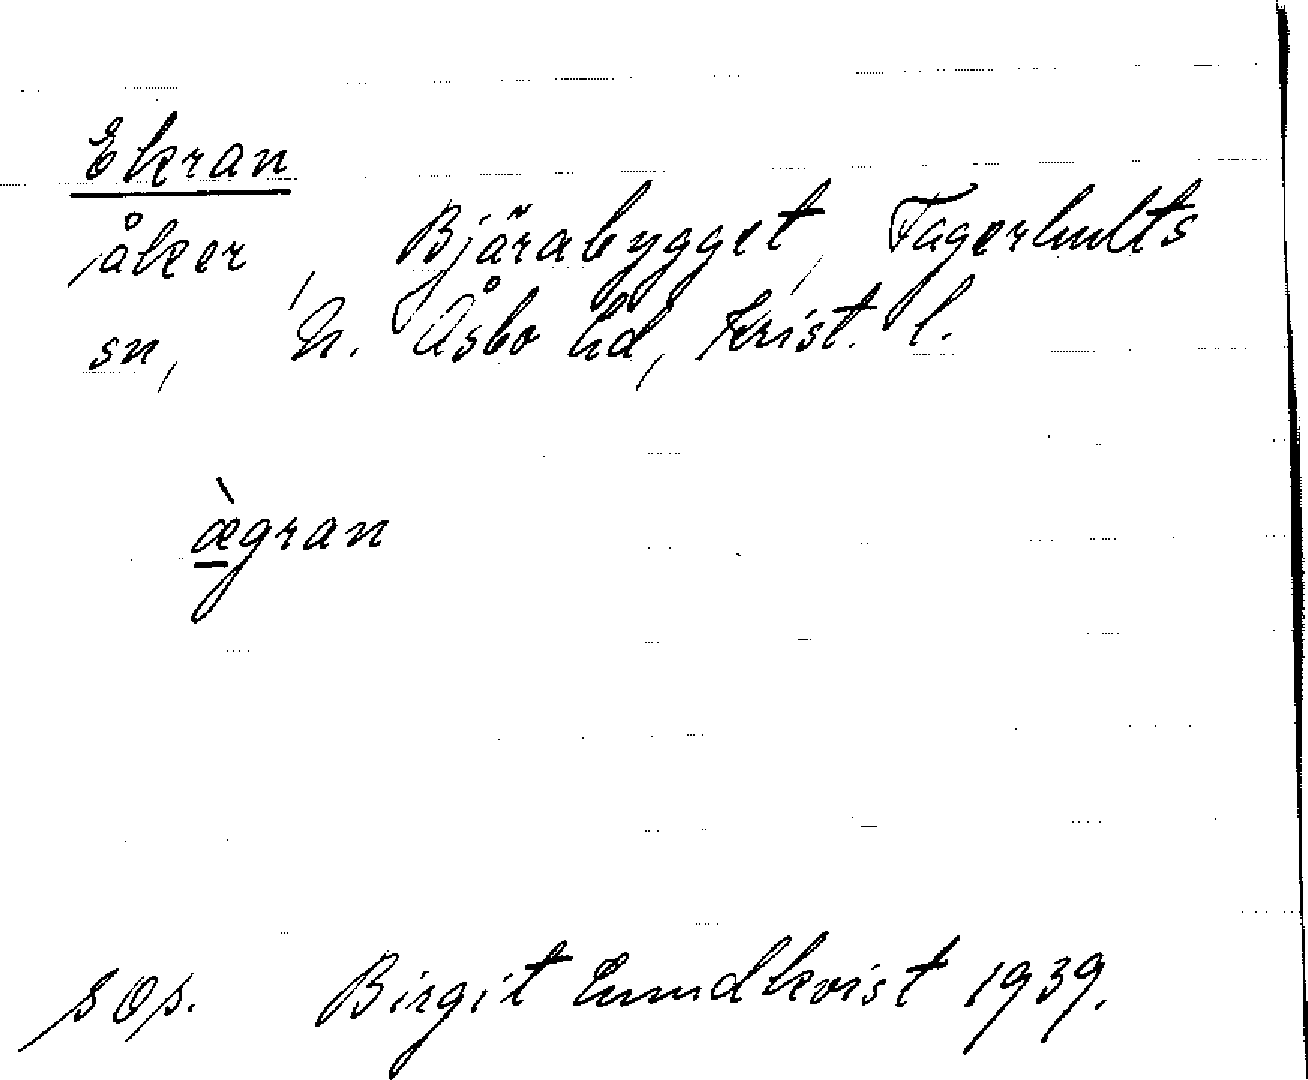 Ekran
åker, Bjärabygget, Fagerhults
sn, N. Åsbo hd, Krist. l.
æ̀gran
Birgit Lundkvist 1939.